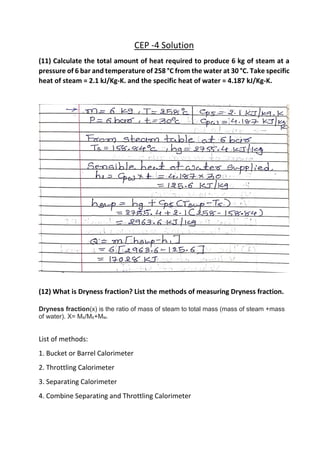 CEP -4 Solution
(11) Calculate the total amount of heat required to produce 6 kg of steam at a
pressure of 6 bar and temperature of 258 °C from the water at 30 °C. Take specific
heat of steam = 2.1 kJ/Kg-K. and the specific heat of water = 4.187 kJ/Kg-K.
→ m = 6 kg, T = 258°C | Cps = 2.1 KJ/kg.K
P = 6 bar, t = 30°C | Cpw = 4.187 KJ/kg K
From steam table at 6 bar
Ts = 158.84°C, hg = 2755.4 KJ/kg
Sensible heat of water supplied.
h1 = Cpw × t = 4.187 × 30
= 125.6 KJ/kg
hsup = hg + Cps (Tsup - Ts)
= 2755.4 + 2.1 (258 - 158.84)
= 2963.6 KJ/kg
Q = m [hsup - h1]
= 6 [2963.6 - 125.6]
= 17028 KJ
(12) What is Dryness fraction? List the methods of measuring Dryness fraction.
Dryness fraction(x) is the ratio of mass of steam to total mass (mass of steam +mass
of water). X= Ms/Ms+Mw.
List of methods:
1. Bucket or Barrel Calorimeter
2. Throttling Calorimeter
3. Separating Calorimeter
4. Combine Separating and Throttling Calorimeter